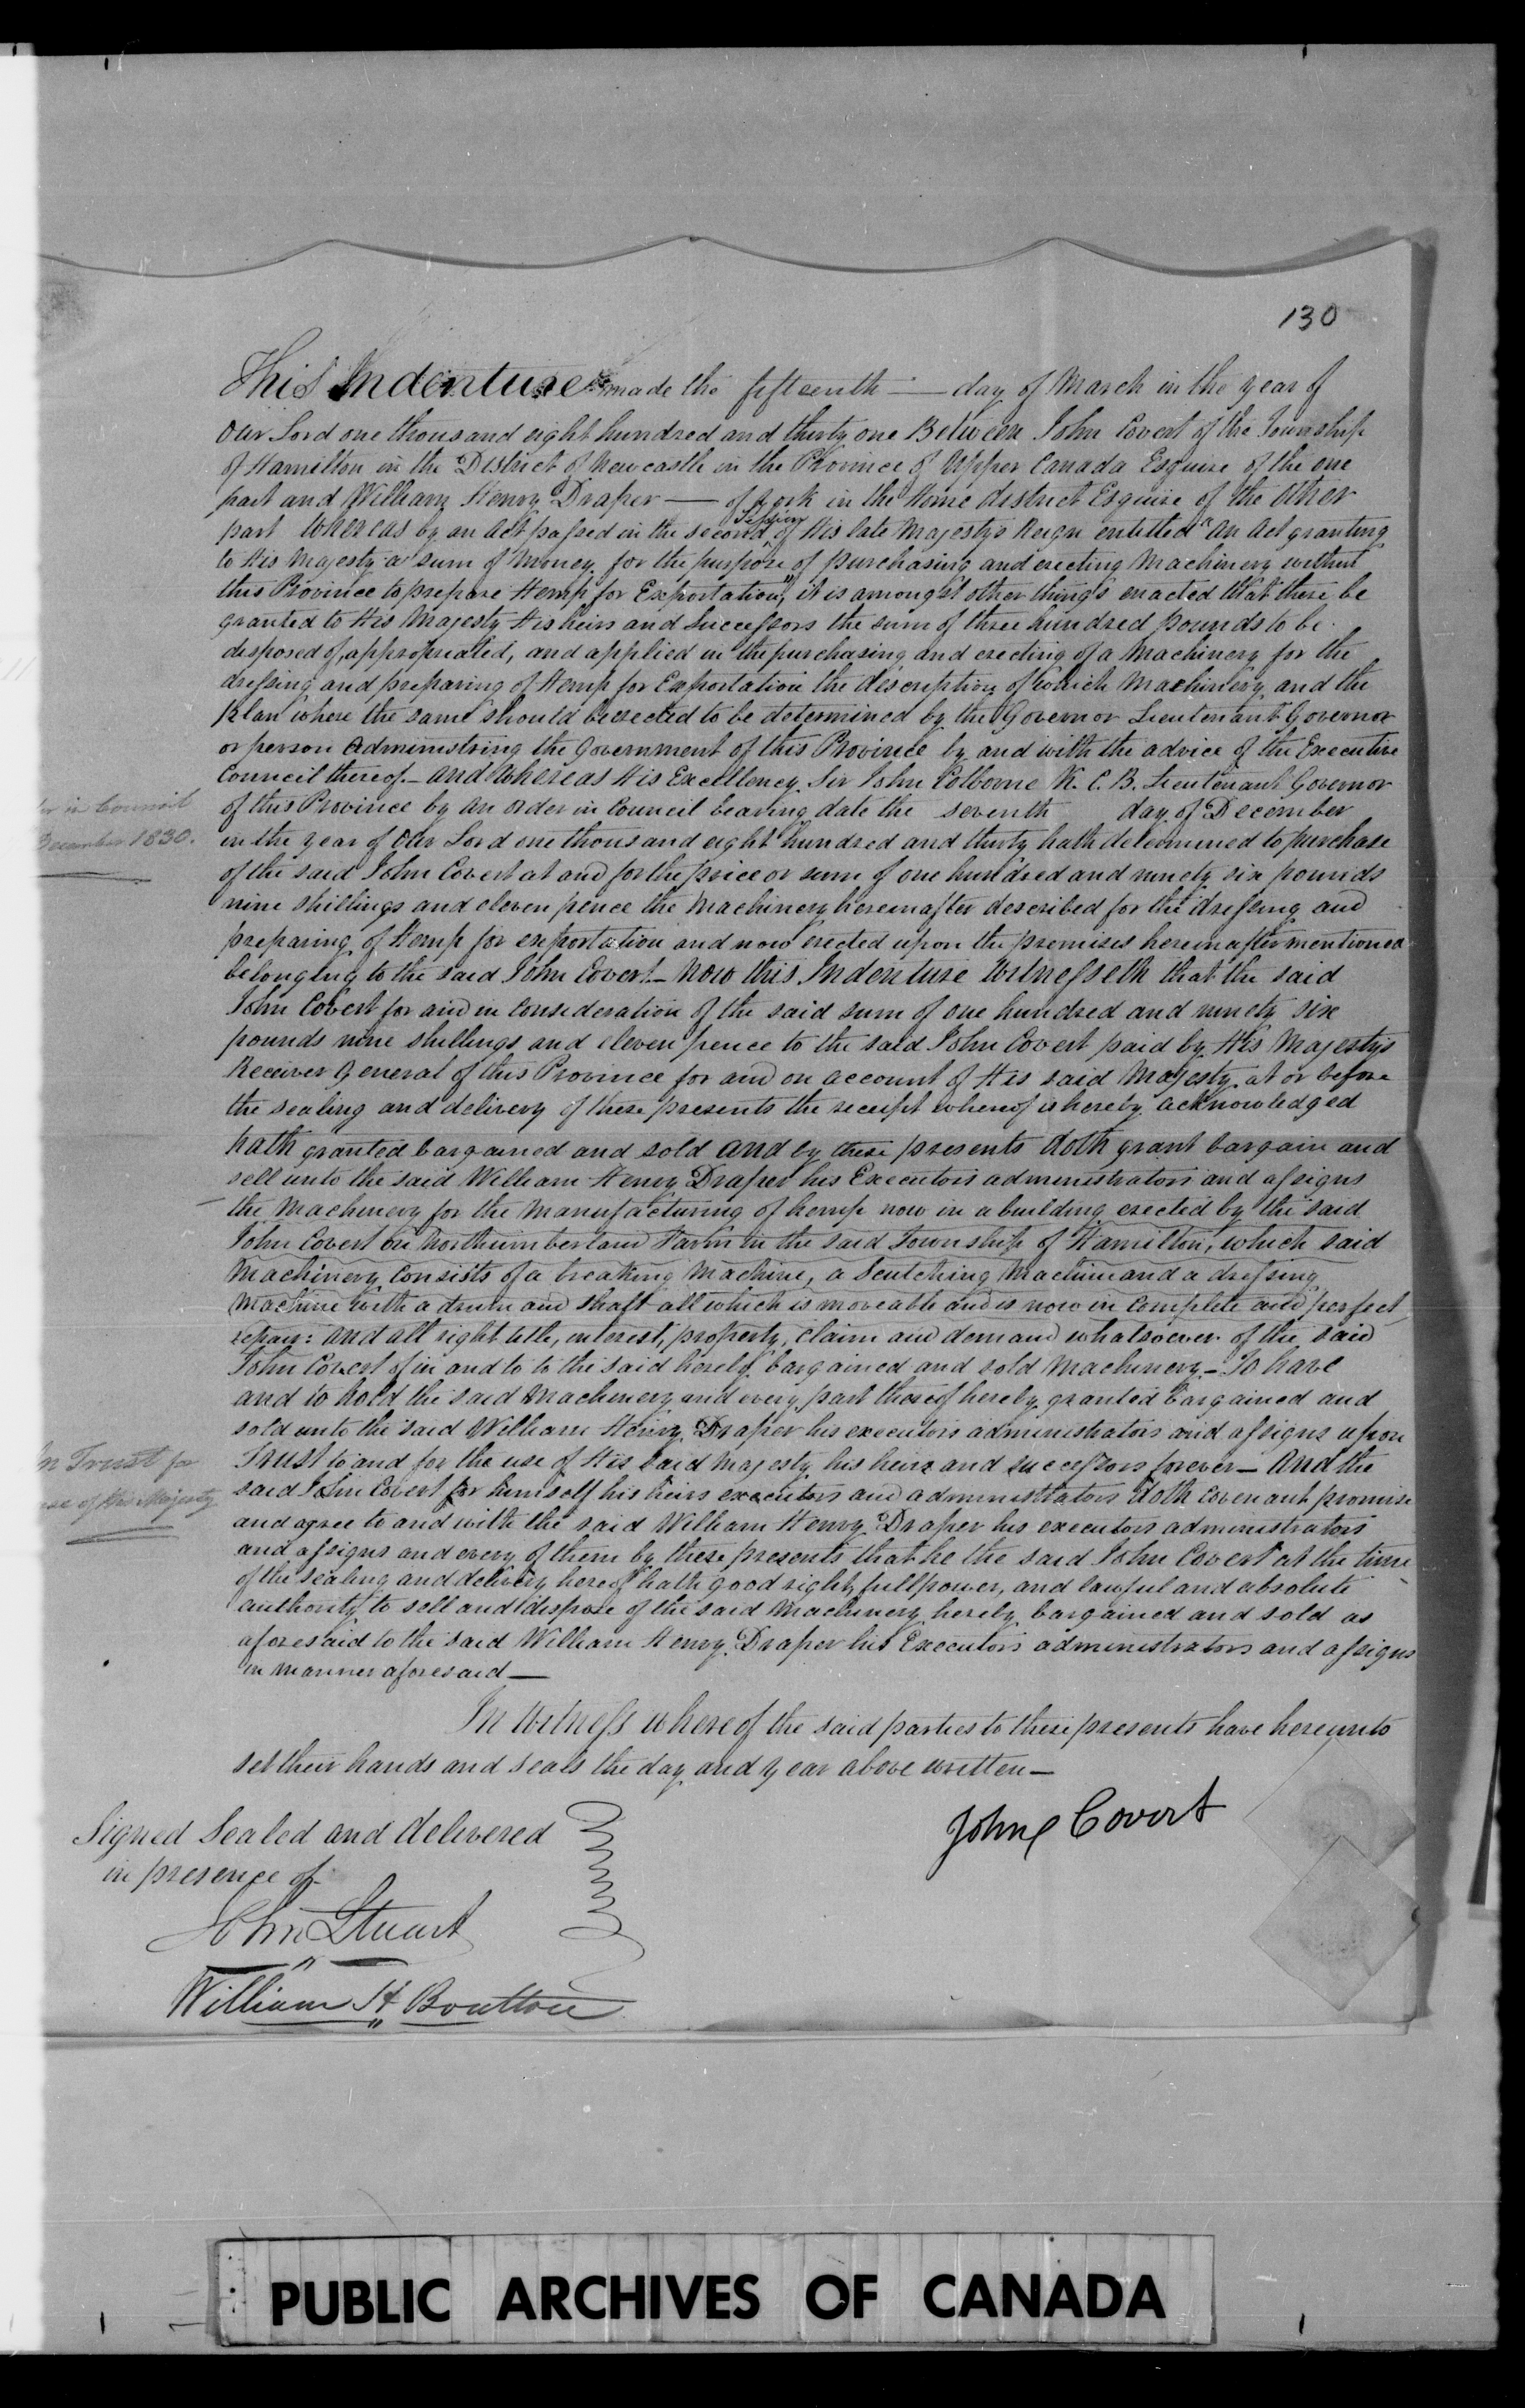 130
This Indenture made the fifteenth — day of March in the year of
Our Lord one thousand eight hundred and thirty one Between John Covert of the Township
of Hamilton in the District of Newcastle in the Province of Upper Canada Esquire of the one
part and William Henry Draper — of York in the Home district Esquire of the other
part Whereas by an Act passed in the second Session of His late Majesty's Reign entitled "An Act granting
to His Majesty a sum of Money for the purpose of purchasing and erecting Machinery within
this Province to prepare Hemp for Exportation" it is amongst other things enacted that there be
granted to His Majesty His heirs and Successors the sum of three hundred pounds to be
disposed of, appropriated, and applied in the purchasing and erecting of a Machinery for the
dressing and preparing of Hemp for Exportation the description of which Machinery and the
Plan where the same should be erected to be determined by the Governor Lieutenant Governor
or person Administring the Government of this Province by and with the advice of the Executive
Council thereof — And Whereas His Excellency Sir John Colborne K. C. B. Lieutenant Governor
of this Province by an order in Council bearing date the seventh day of December
in Council
December 1830.
in the year of Our Lord one thousand eight hundred and thirty hath determined to purchase
of the said John Covert at and for the price or sum of one hundred and ninety six pounds
nine shillings and eleven pence the Machinery hereinafter described for the dressing and
preparing of Hemp for exportation and now erected upon the premises hereinafter mentioned
belonging to the said John Covert — Now this Indenture Witnesseth that the said
John Covert for and in Consideration of the said sum of one hundred and ninety six
pounds nine shillings and eleven pence to the said John Covert paid by His Majesty's
Receiver General of this Province for and on account of His said Majesty at or before
the sealing and delivery of these presents the receipt whereof is hereby acknowledged
hath granted bargained and sold and by these presents doth grant bargain and
sell unto the said William Henry Draper his Executors administrators and assigns
the Machinery for the Manufacturing of hemp now in a building erected by the said
John Covert on Northumberland Farm in the said Township of Hamilton, which said
Machinery consists of a breaking Machine, a Scutching Machine and a dressing
Machine with a drum and shaft all which is moveable and is now in complete and perfect
repair: and all right title, interest, property, claim and demand whatsoever of the said
John Covert of in and to to the said hereby bargained and sold Machinery — To have
and to hold the said Machinery and every part thereof hereby granted bargained and
sold unto the said William Henry Draper his executors administrators and assigns upon
In Trust for
use of His Majesty
Trust to and for the use of His said Majesty his heirs and successors forever — And the
said John Covert for himself his heirs executors and administrators doth covenant promise
and agree to and with the said William Henry Draper his executors administrators
and assigns and every of them by these presents that he the said John Covert at the time
of the sealing and delivery hereof hath good right, full power, and lawful and absolute
authority to sell and dispose of the said Machinery hereby bargained and sold as
aforesaid to the said William Henry Draper his Executors administrators and assigns
in manner aforesaid —
In Witness whereof the said parties to these presents have hereunto
set their hands and seals the day and year above written —
Signed Sealed and delivered
in presence of
John Covert
John Stuart
William H Boulton
PUBLIC ARCHIVES OF CANADA